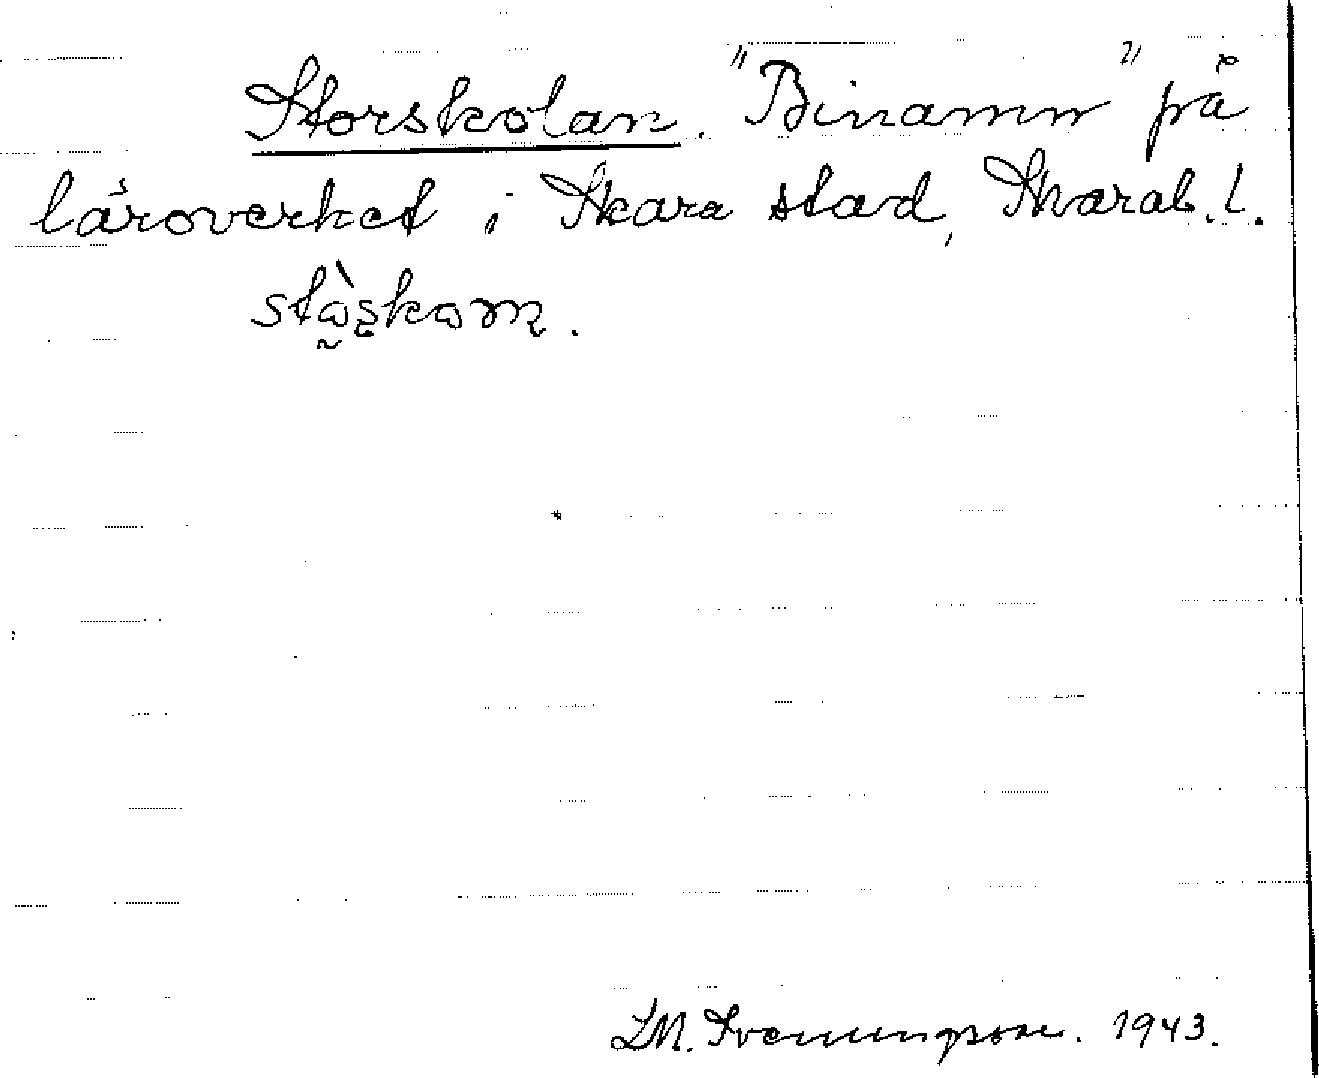 Storskolan. "Binamn" på
läroverket i Skara stad, Skarab. l.
L.M. Svenungsson. 1943.